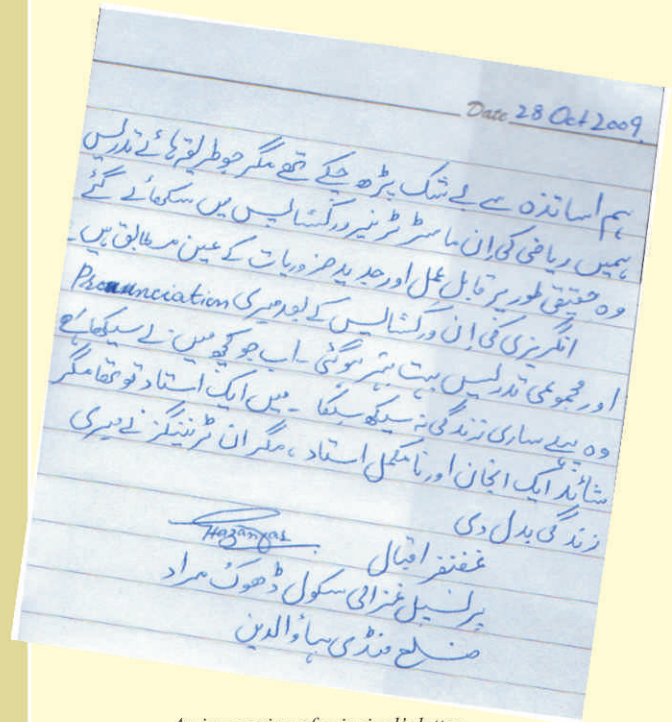 Date 28 Oct 2009.
ہم اساتذہ سے بے شک پڑھ چکے تھے مگر جو طریقہ ہائے تدریس
ہمیں ریاضی کی اِن ماسٹر ٹرینر ورکشاپس میں سکھائے گئے
وہ حقیقی طور پر قابل عمل اور جدید ضروریات کے عین مطابق ہیں۔
انگریزی کی اِن ورکشاپس کے بعد میری Pronunciation
اور مجموعی تدریس بہت بہتر ہو گئی۔ اب جو کچھ میں نے سیکھا ہے
وہ پہلے ساری زندگی نہ سیکھ سکا۔ میں ایک استاد تو تھا مگر
شائد ایک انجان اور نا مکمل استاد، مگر ان ٹریننگز نے میری
زندگی بدل دی
غضنفر اقبال
پرنسپل غزالی سکول ڈھوک مراد
ضلع منڈی بہاؤالدین